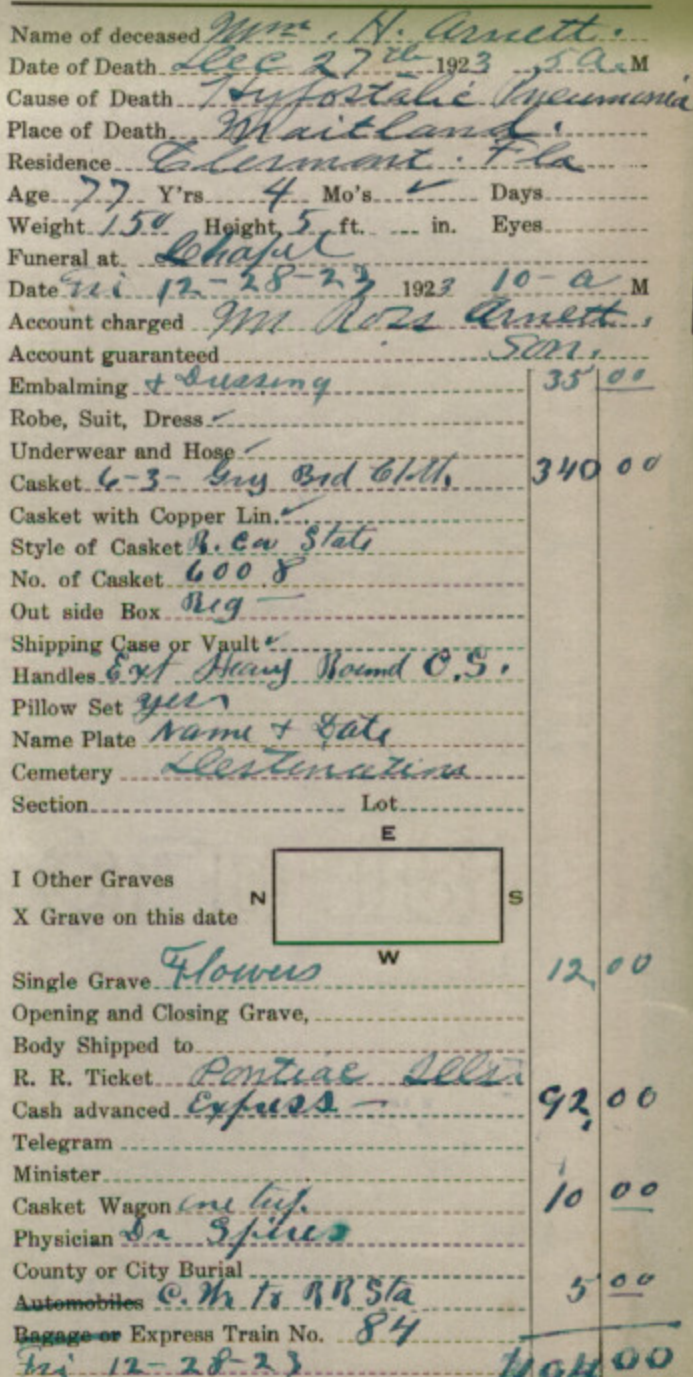 Name of deceased Wm. H. Arnett.
Date of Death Dec 27th 1923 5 a. M
Cause of Death Hyfostatic Pneumonia
Place of Death Maitland.
Residence Clermont. Fla
Age 77 Y'rs 4 Mo's ✓ Days
Weight 150 Height, 5 ft. in. Eyes
Funeral at Chapel
Date Fri 12-28-23 1923 10- a M
Account charged Mr Ross Arnett,
Account guaranteed Son.
Embalming + Dressing 35 00
Robe, Suit, Dress ✓
Underwear and Hose ✓
Casket 6-3- Gry Brd Cloth. 340 00
Casket with Copper Lin. ✓
Style of Casket State
No. of Casket 600.8
Out side Box Reg -
Shipping Case or Vault ✓
Handles Ext Heavy Round O.S.
Pillow Set yes
Name Plate Name + Date
Cemetery Destination
Section Lot
E
I Other Graves
N S
X Grave on this date
W
Single Grave Flowers 12,00
Opening and Closing Grave,
Body Shipped to
R. R. Ticket Pontiac Ills.
Cash advanced Express - 92,00
Telegram
Minister
Casket Wagon one trip. 10 00
Physician Dr
County or City Burial
Automobiles C. W. to RR Sta 5 00
Bagage or Express Train No. 84
Fri 12-28-23 494 00